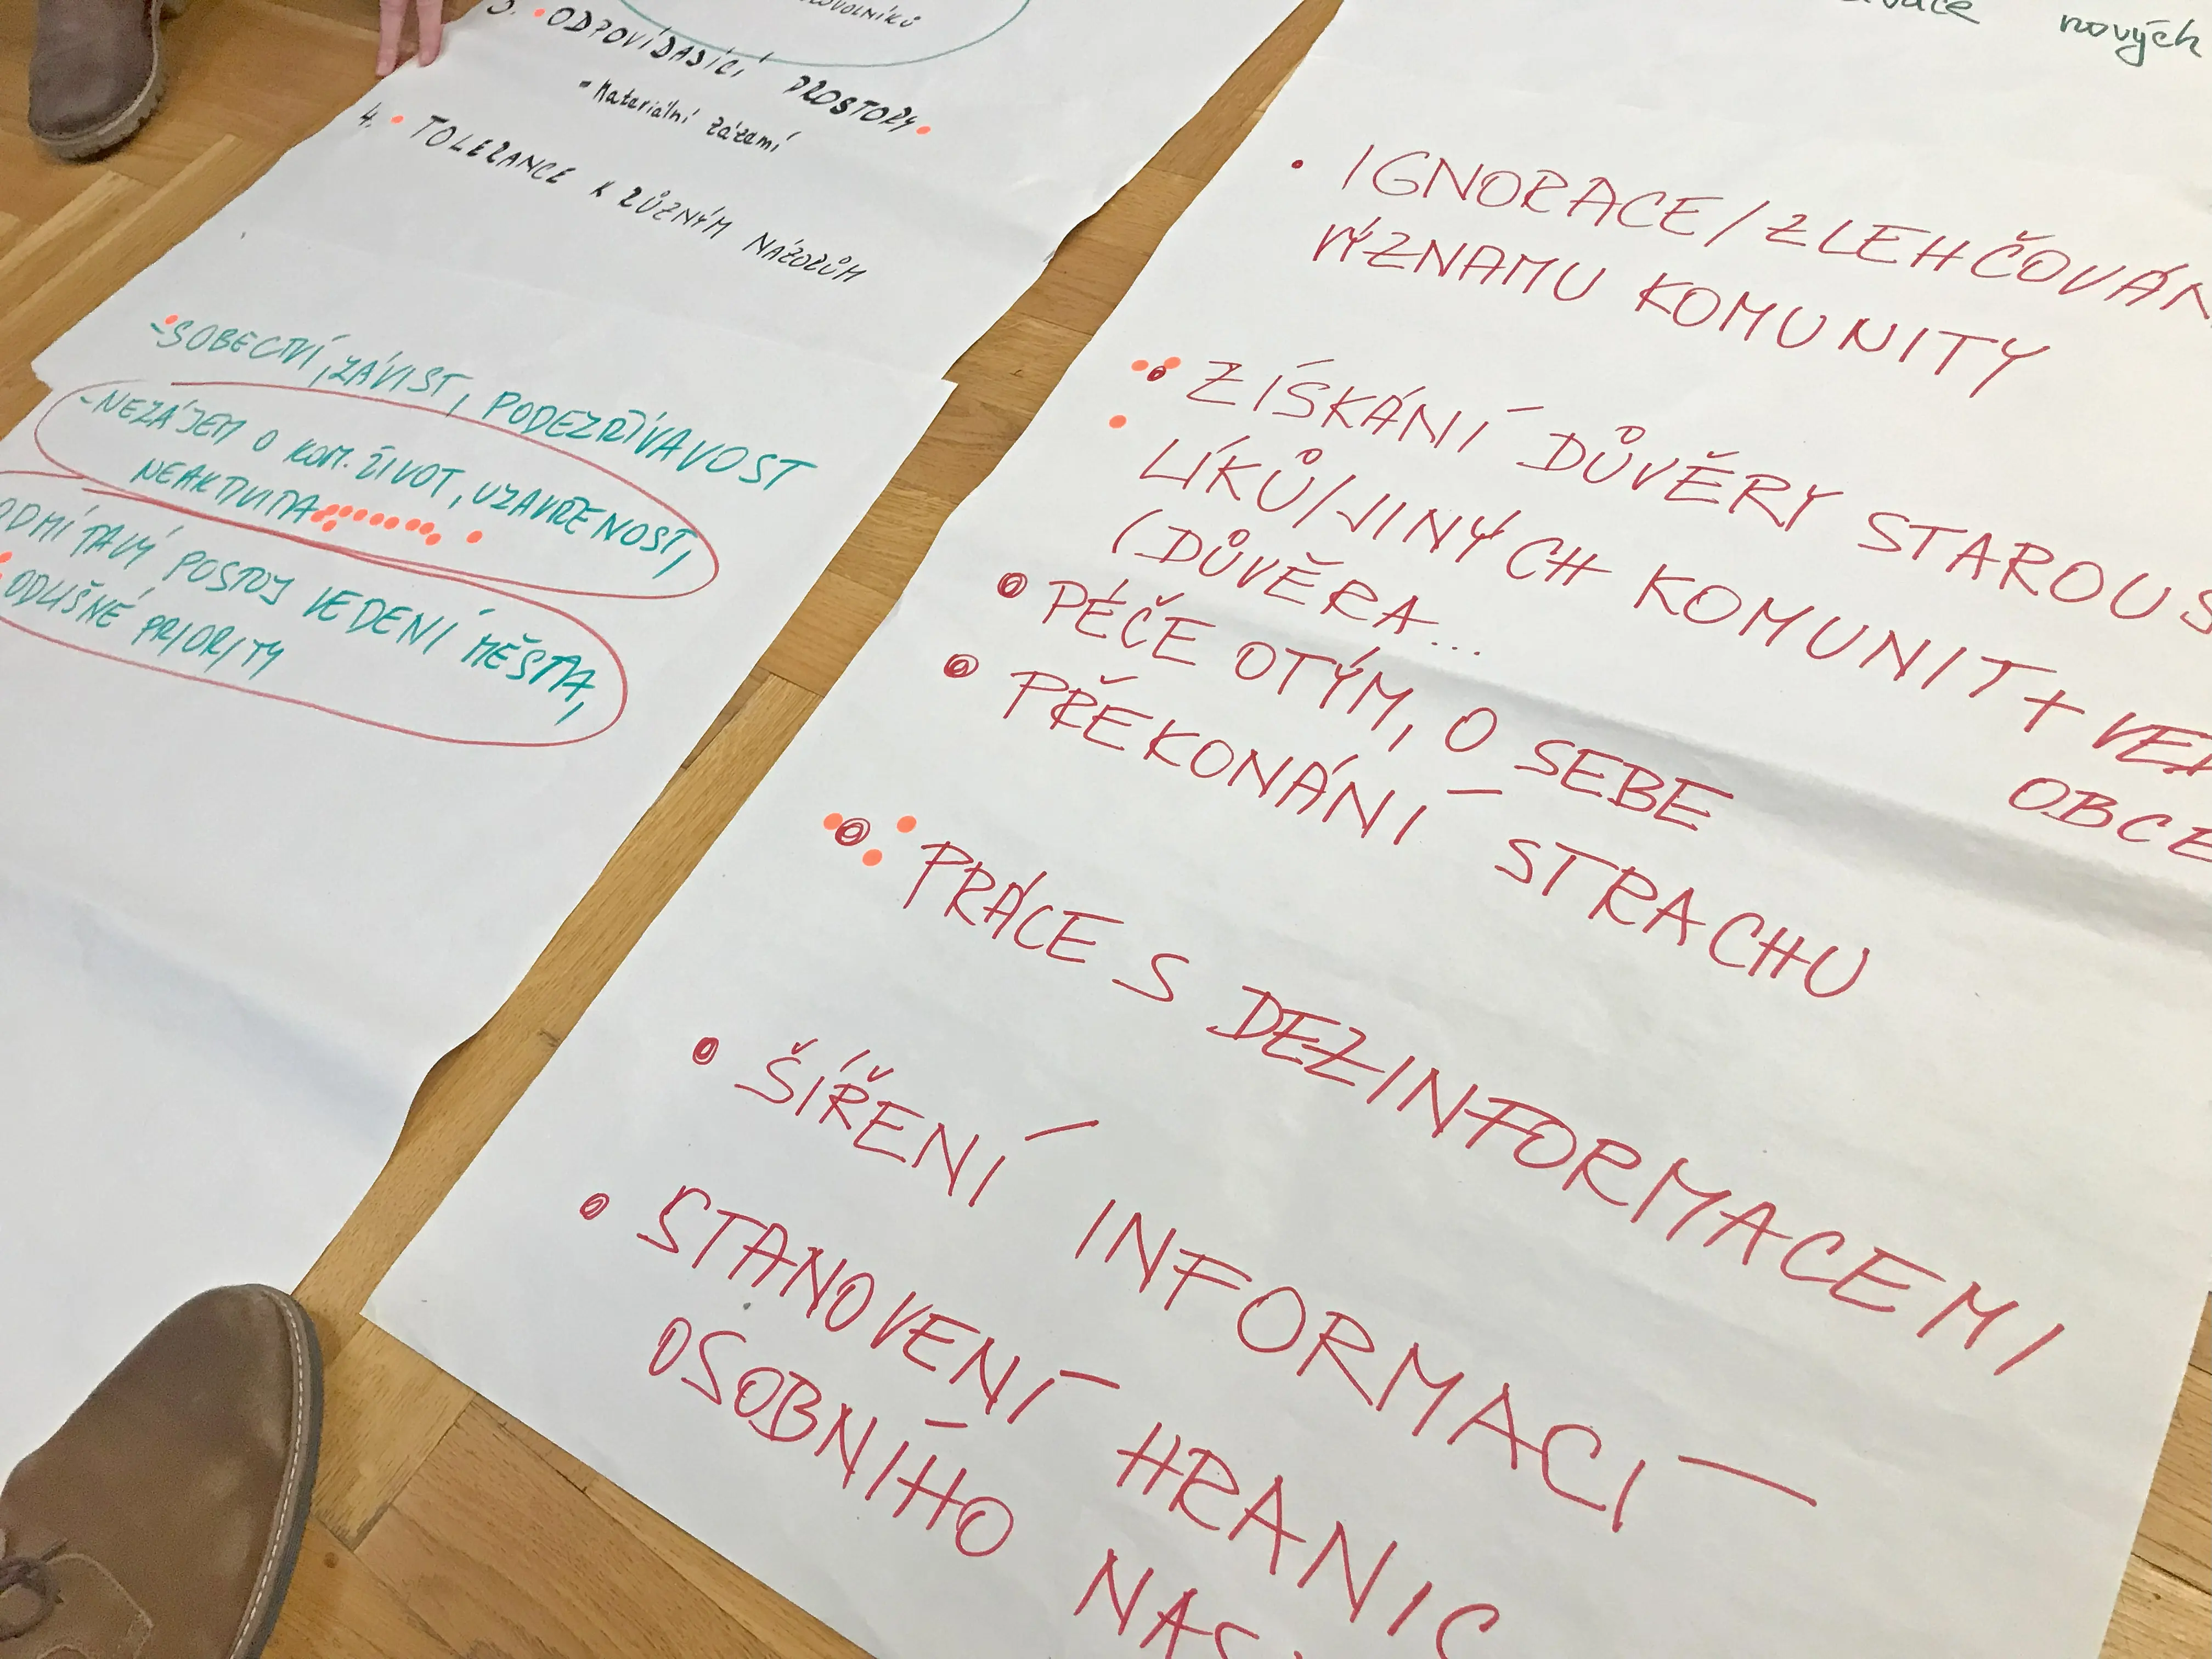 3. • ODPOVÍDAJÍCÍ PROSTORY
- Materiální zázemí
4. • TOLERANCE K RŮZNÝM NÁZORŮM
- SOBECTVÍ, ZÁVIST, PODEZŘÍVAVOST
- NEZÁJEM O KOM. ŽIVOT, UZAVŘENOST,
NEAKTIVITA
ODMÍTAVÝ POSTOJ VEDENÍ MĚSTA,
PRIORITY
nových
• IGNORACE/ZLEHČOVÁN
VÝZNAMU KOMUNITY
• ZÍSKÁNÍ DŮVĚRY STAROUS
LÍKŮ/JINÝCH KOMUNIT + VED
OBCE
(DŮVĚRA...
• PÉČE O TÝM, O SEBE
• PŘEKONÁNÍ STRACHU
• PRÁCE S DEZINFORMACEMI
• ŠÍŘENÍ INFORMACÍ
• STANOVENÍ HRANIC
OSOBNÍHO NAS